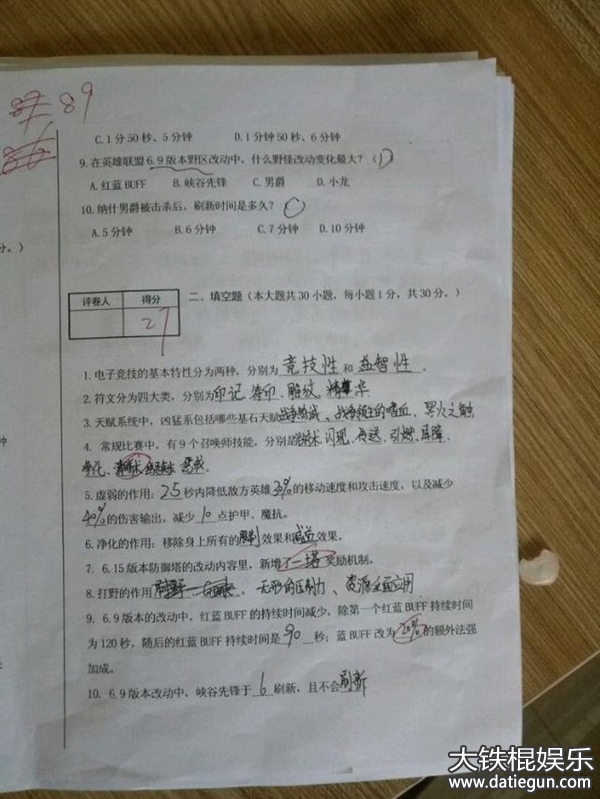 89
C.1分50秒、5分钟 D.1分钟50秒、6分钟
9.在英雄联盟6.9版本野区改动中，什么野怪改动变化最大?（D）
A.红蓝BUFF B.峡谷先锋 C.男爵 D.小龙
10.纳什男爵被击杀后，刷新时间是多久?
A.5分钟 B.6分钟 C.7分钟 D.10分钟
分。）
评卷人 得分
27
二、填空题（本大题共30小题，每小题1分，共30分。）
1.电子竞技的基本特性分为两种，分别为 竞技性 和 益智性 .
2.符文分为四大类，分别为印记、符印、雕纹、精华
3.天赋系统中，凶猛系包括哪些基石天赋战争热诚、战争领主的嗜血、冥火之触
4. 常规比赛中，有9个召唤师技能，分别是治疗术、闪现、传送、引燃、屏障、
净化、 惩戒.
5.虚弱的作用：2.5秒内降低敌方英雄30%的移动速度和攻击速度，以及减少
40%的伤害输出，减少10点护甲、魔抗。
6.净化的作用：移除身上所有的 效果和减益效果。
7. 6.15版本防御塔的改动内容里，新增了一塔奖励机制。
8.打野的作用 无形的压制力、资源全面应用
9. 6.9版本的改动中，红蓝BUFF的持续时间减少，除第一个红蓝BUFF持续时间
为120秒，随后的红蓝BUFF持续时间是90秒；蓝BUFF改为20%的额外法强
加成。
10. 6.9版本改动中，峡谷先锋于6刷新，且不会刷新
钟
大铁棍娱乐
www.datiegun.com